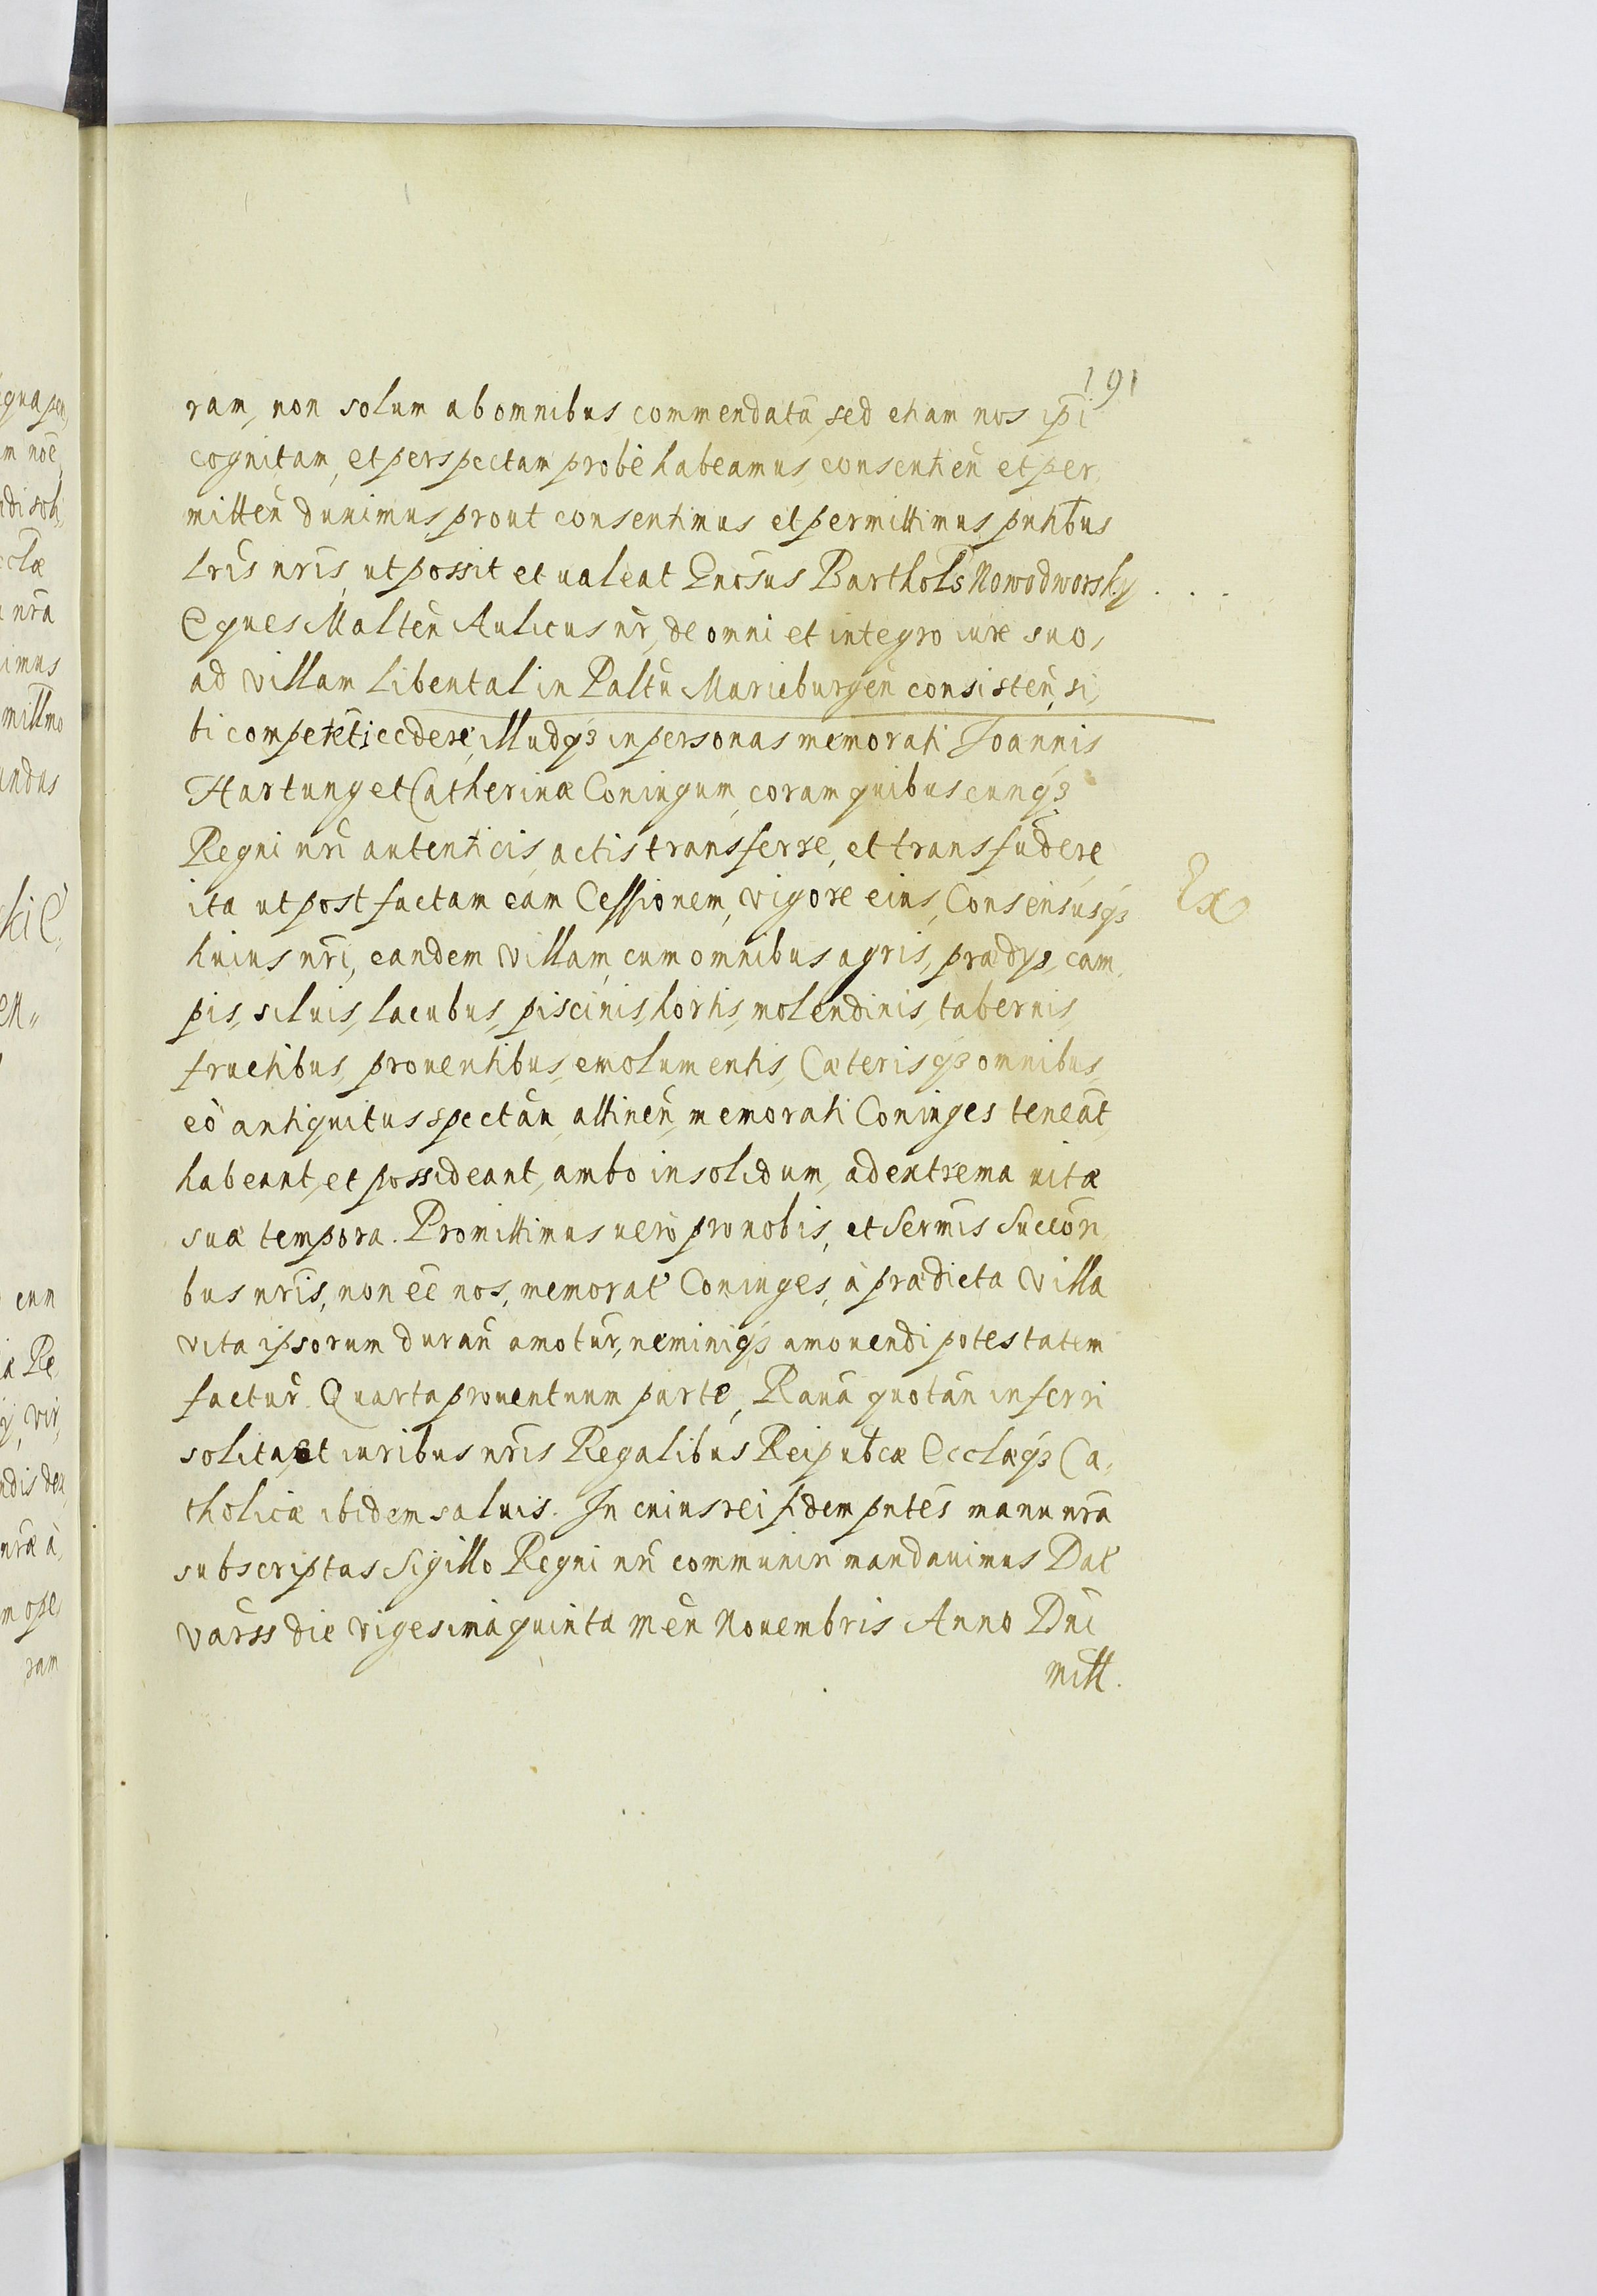 191
ram, non solum ab omnibus commendatā, sed etiam nos ipi
cognitam, et perspectam probè habeamus, consentien̄ et per,
mitten̄ duximus, prout consentimus et permittimus pntibus
lris nris, ut possit et ualeat Gnosus Barthols Nowodworsky . . .
Eques Malten̄ Aulicus nr, de omni et integro iure suo,
ad villam Libental in Paltū Marieburgen̄ consisten̄, si,
bi competēti cedere, illudq3 in personas memorati Joannis
Hartung et Catherinæ Coniugum, coram quibuscunq3
Regni nri autenticis actis transferre, et transfūdere
ita ut post factam eam Cessionem, vigore eius, Consensusq3
huius nri, eandem villam, cum omnibus agris, prædys, cam,
pis, siluis, lacubus, piscinis, hortis, molendinis, tabernis,
fructibus, prouentibus, emolumentis, Cæterisq3 omnibus,
eò antiquitus spectān, attinen̄, memorati Coniuges teneāt,
habeant, et possideant, ambo in solidum, ad extrema uitæ
suæ tempora. Promittimus uerò pro nobis, et Sermis Succōr,
bus nris, non ēē nos, memorat Coniuges, à prædicta villa
vita ipsorum duran̄ amotur̄, neminiq3 amouendi potestatem
factur̄. Quarta prouentuum parte, Rauā quotān inferri
solita, et iuribus nris Regalibus Reipubcæ Ecclæq3 Ca,
tholicæ ibidem saluis. In cuius rei fidem pntes manu nra
subscriptas Sigillo Regni nri communiri mandauimus Dat
Varss die vigesima quinta Men̄ Nouembris Anno Dni
Mill.